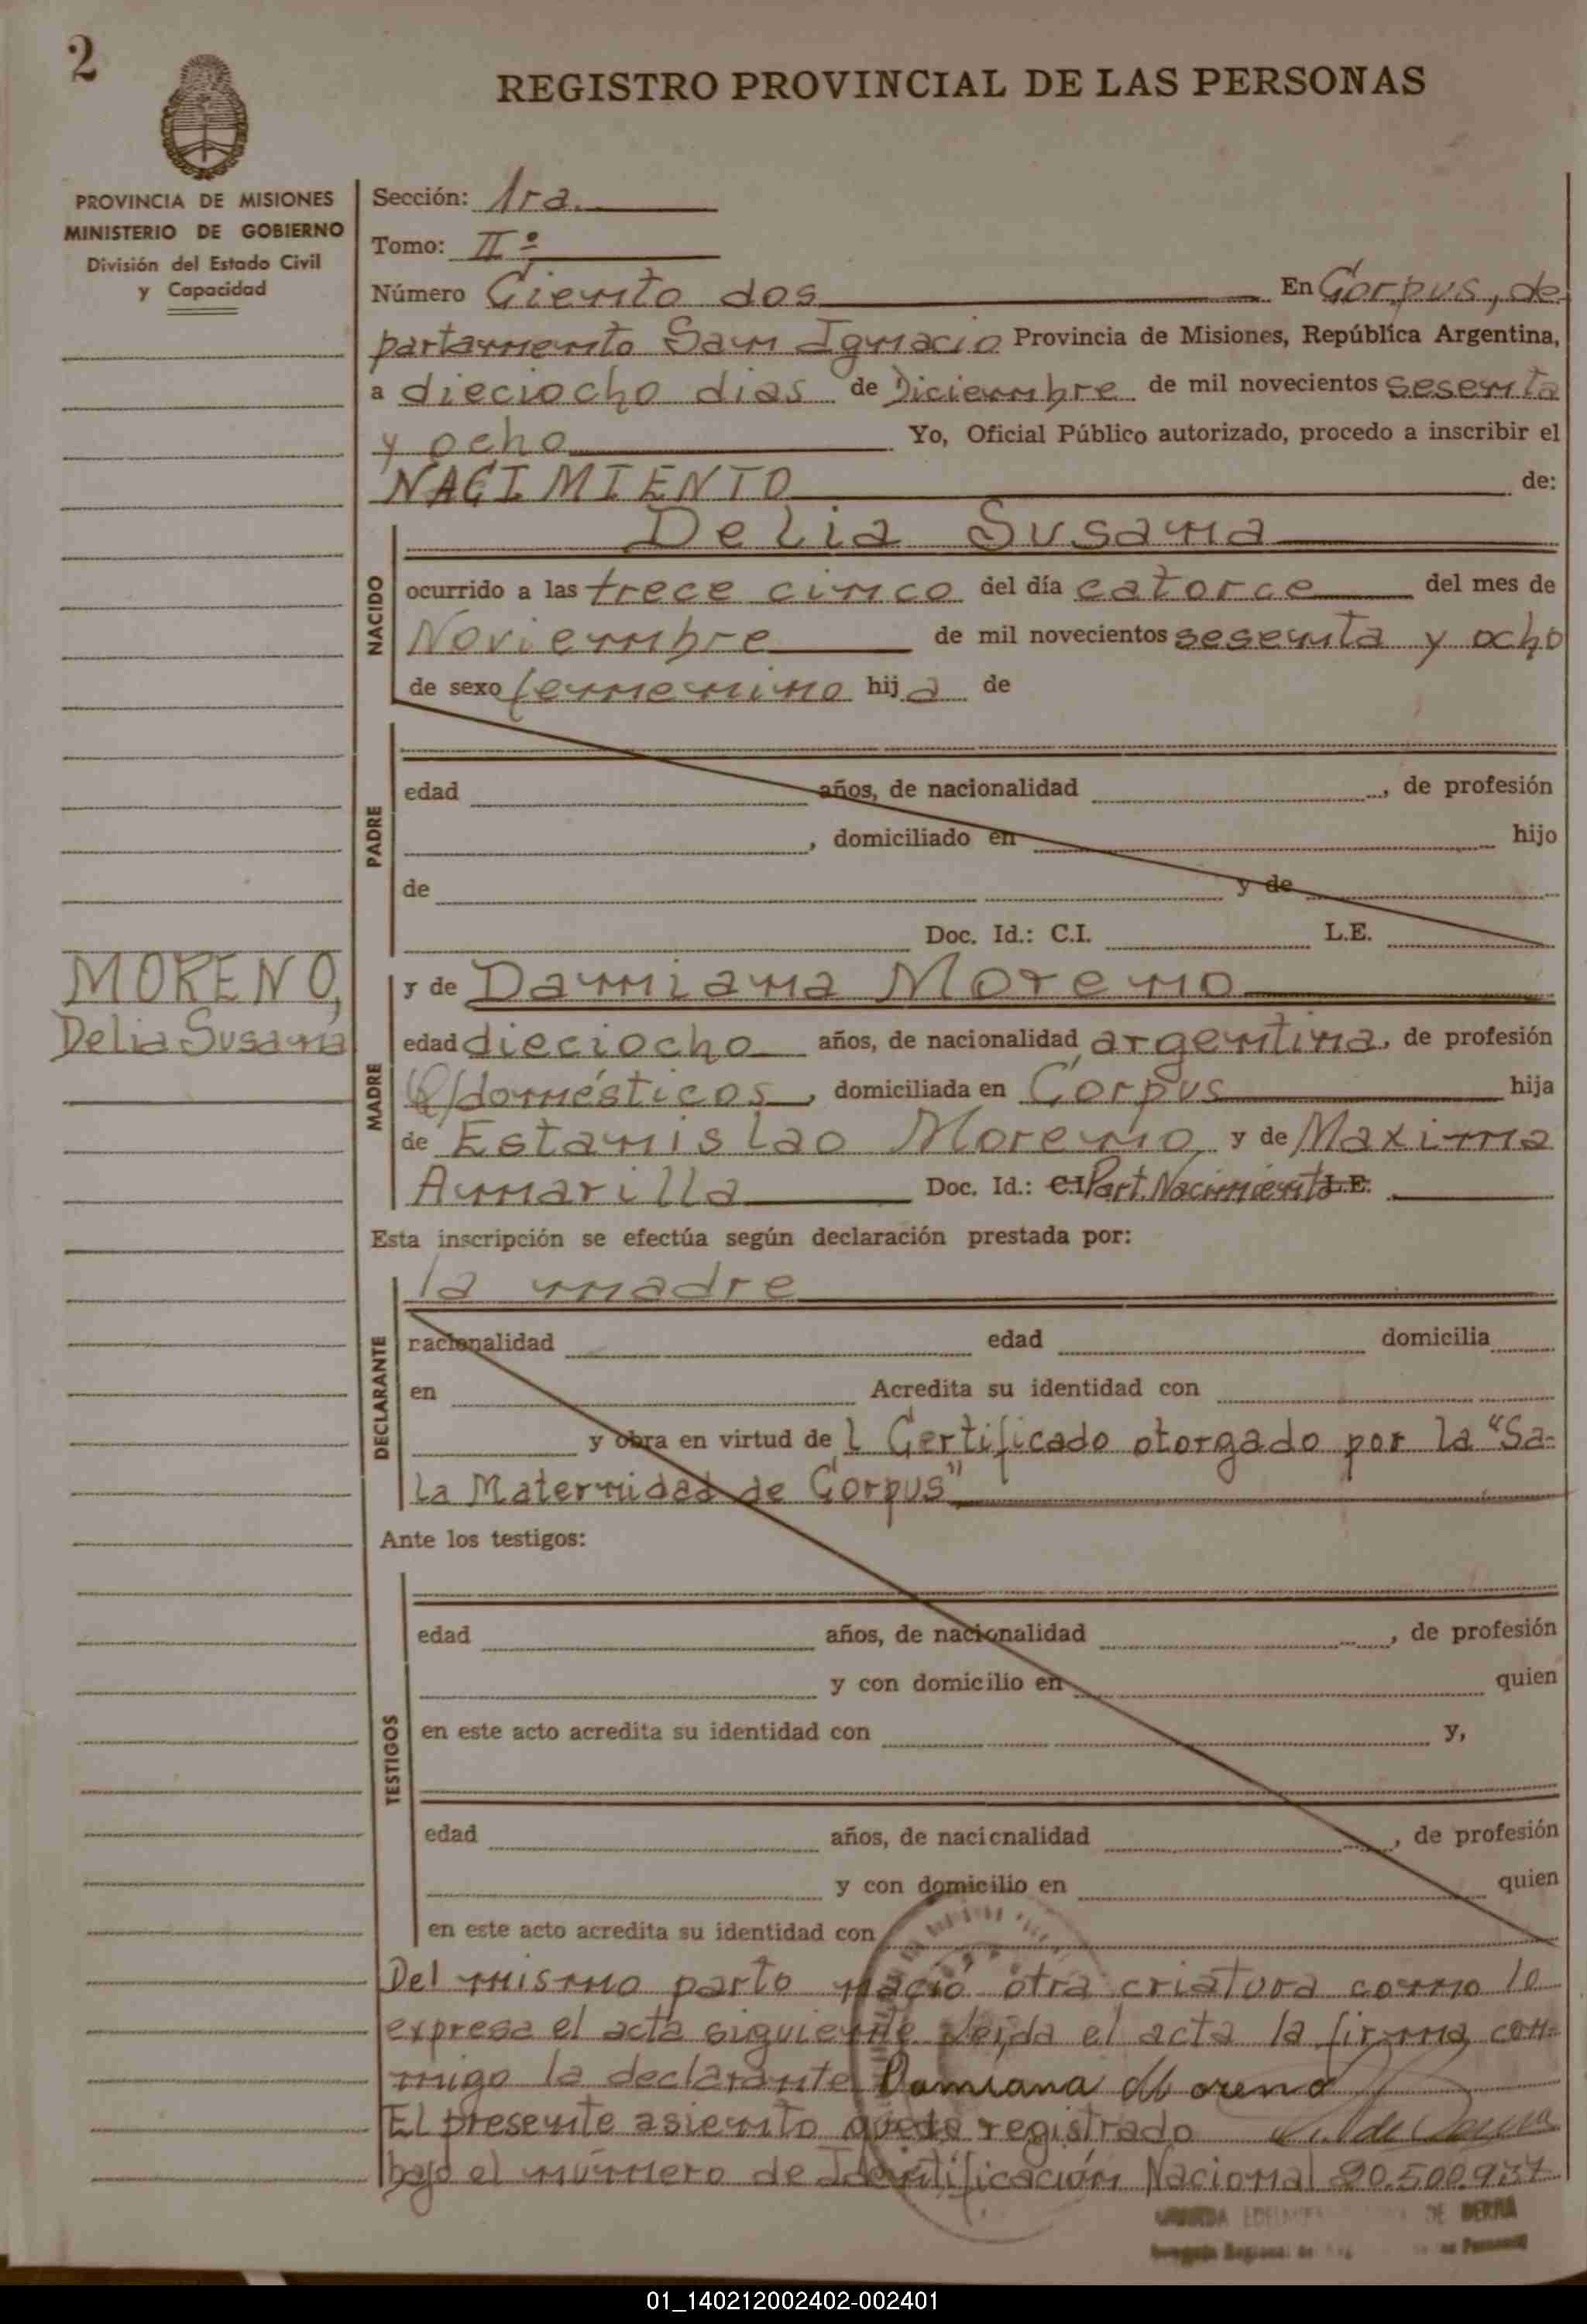 2
REGISTRO PROVINCIAL DE LAS PERSONAS
PROVINCIA DE MISIONES
MINISTERIO DE GOBIERNO
División del Estado Civil
y Capacidad
Sección: 1ra.
Tomo: IIº
Número Ciento dos En Corpus, de-
partamento San Ignacio Provincia de Misiones, República Argentina,
a dieciocho dias de Diciembre de mil novecientos sesenta
y ocho Yo, Oficial Público autorizado, procedo a inscribir el
NACIMIENTO de:
Delia Susana
NACIDO
ocurrido a las trece cinco del día catorce del mes de
Noviembre de mil novecientos sesenta y ocho
de sexo femenino hija de
PADRE
edad años, de nacionalidad , de profesión
, domiciliado en hijo
de y de
Doc. Id.: C.I. L.E.
MORENO,
Delia Susana
MADRE
y de Damiana Moreno
edad dieciocho años, de nacionalidad argentina, de profesión
Q/domésticos, domiciliada en Corpus hija
de Estanislao Moreno y de Maxima
Amarilla Doc. Id.: C.I Part. Nacimiento L.E.
Esta inscripción se efectúa según declaración prestada por:
la madre
DECLARANTE
nacionalidad edad domicilia
en Acredita su identidad con
y obra en virtud de l Certificado otorgado por la "Sa-
la Maternidad de Corpus"
Ante los testigos:
TESTIGOS
edad años, de nacionalidad , de profesión
y con domicilio en quien
en este acto acredita su identidad con y,
edad años, de nacicnalidad , de profesión
y con domicilio en quien
en este acto acredita su identidad con
Del mismo parto nació otra criatura como lo
expresa el acta siguiente leída el acta la firma con-
migo la declarante Damiana Moreno
El presente asiento queda registrado
bajo el número de Identificación Nacional 20.500.937
DE BERRA
01_140212002402-002401